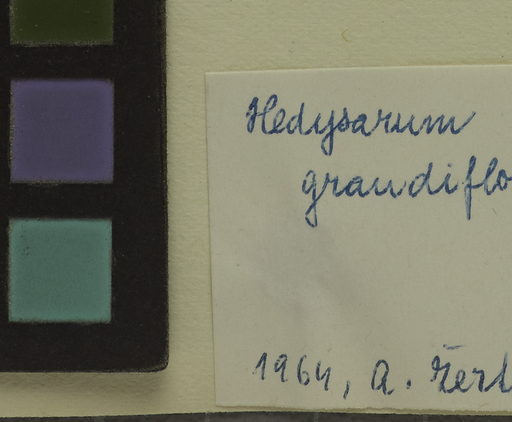 Hedysarum
grandiflo
1964, A.